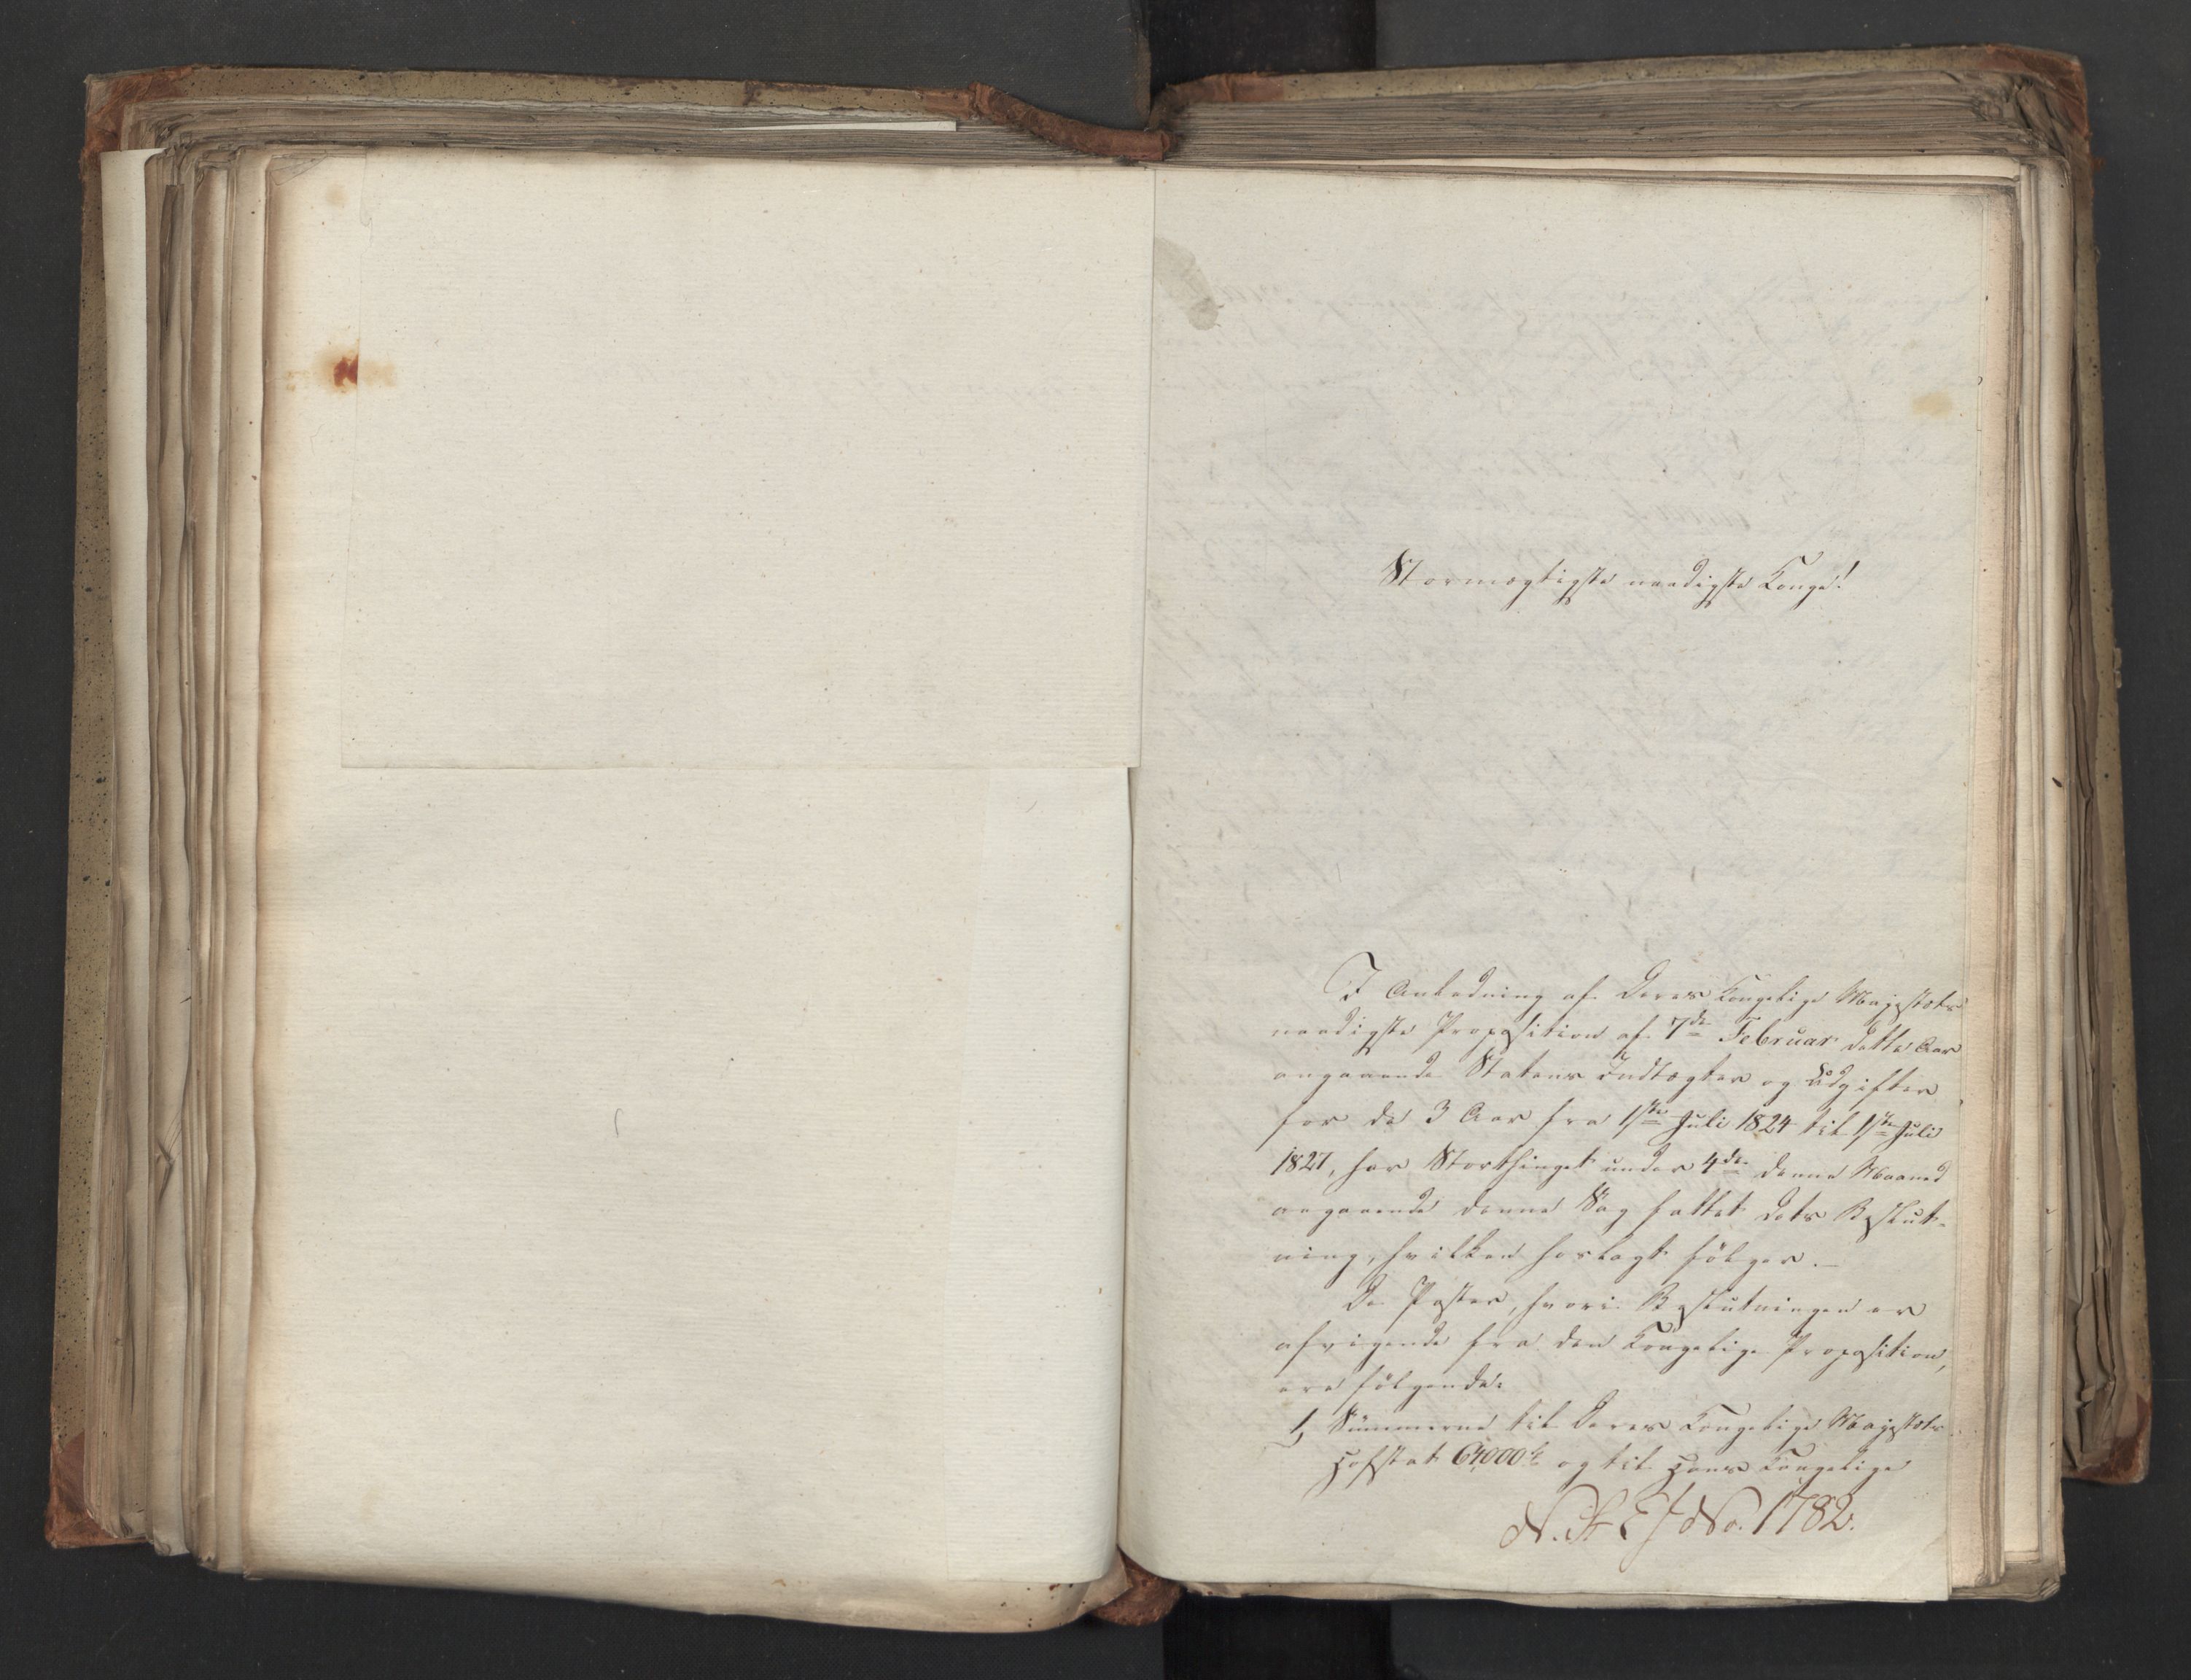 Stormægtigste naadigste Konge!
I Anledning af Deres Kongelige Majestæts
naadigste Proposition af 7de Februar dette Aar
angaaende Statens Indtægter og Udgifter
for de 3 Aar fra 1ste Juli 1824 til 1ste Juli
1827, har Storthinget under 4de denne Maaned
angaaende denne Sag fattet dets Beslut-
ning, hvilken hoslagt følger.-
De Poster, hvori Beslutningen er
afvigende fra den Kongelige Proposition,
ere følgende:
1, Summerne til Deres Kongelige Majestæts
Hofstat 64000 og til Hans Kongelige
No. 1782.